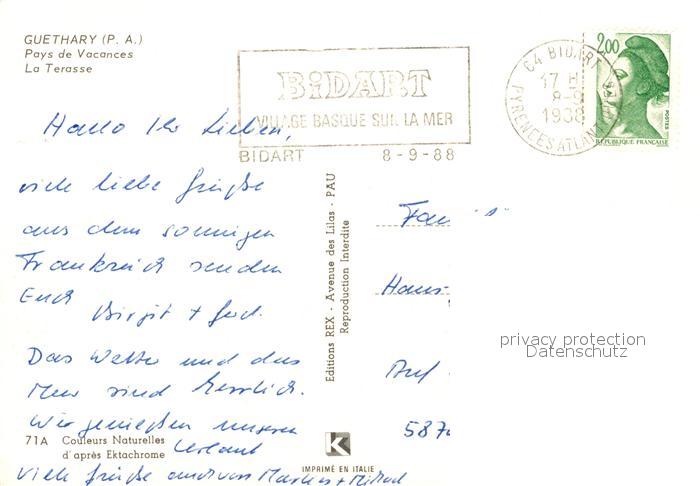 GUETHARY (P. A.)
Pays de Vacances
La Terasse
BiDART
VILLAGE BASQUE SUR LA MER
BIDART 8-9-88
C4 BIDART
17 H
8-9
1988
PYRENEES ATLAN
2,00
POSTES
REPUBLIQUE FRANÇAISE
Hallo Ihr Lieben,
viele liebe Grüße
aus dem sonnigen
Frankreich senden
Euch
Birgit + Gerd.
Das Wetter und das
Meer sind herrlich.
Wir genießen unseren
Urlaub
Viele Grüße auch von Markus + Michael
Editions REX - Avenue des Lilas - PAU
Reproduction Interdite
Fam
Hans-
Auf
587
privacy protection
Datenschutz
71A Couleurs Naturelles
d'après Ektachrome
K
IMPRIMÉ EN ITALIE